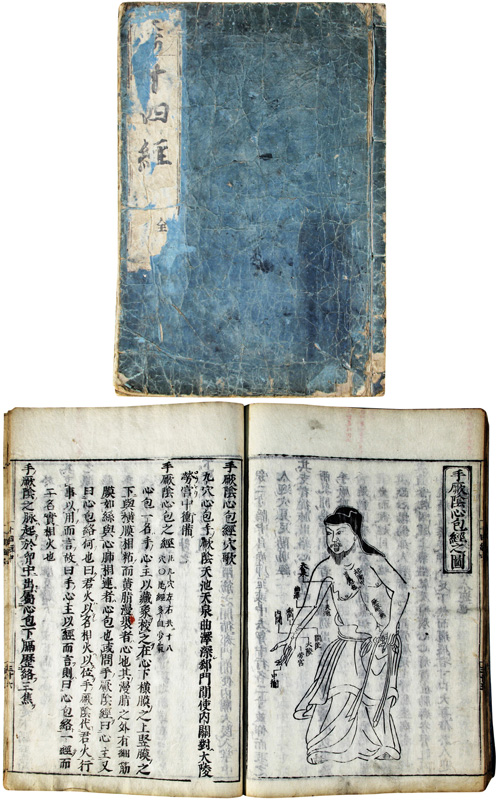 十四經
全
手厥陰心包經之圖
中衝
手厥陰心包經穴歌
九穴心包手厥陰天池天泉曲澤深郄門間使内關對大陵
勞宮中衝備
手厥陰心包之經
心包一名手心主以藏象校之在心下横膜之上竪膜之
下與横膜相粘而黄脂漫裹者心也其漫脂之外有細筋
膜如絲與心肺相連者心包也或問手厥陰經曰心主又
曰心包絡何也曰君火以名相火以位手厥陰代君火行
事以用而言故曰手心主以經而言則曰心包絡一經而
二名實相火也
手厥陰之脉起於胷中出屬心包下膈歷絡三焦